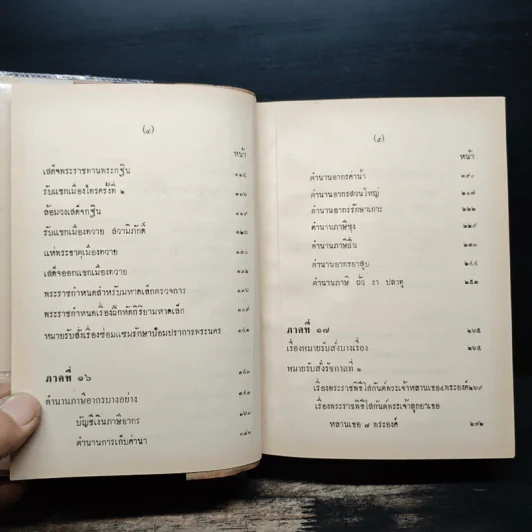 (๔)
หน้า
เสด็จพระราชทานพระกฐิน ๑๑๕
รับแขกเมืองไทรครั้งที่ ๒ ๑๑๖
ล้อมวงเสด็จกฐิน ๑๑๙
รับแขกเมืองทวาย สวามิภักดิ์ ๑๒๖
แห่พระธาตุเมืองทวาย ๑๓๐
เสด็จออกแขกเมืองทวาย
พระราชกำหนดสำหรับมหาดเล็กตรวจการ
พระราชกำหนดเรื่องฝึกหัดกิริยามหาดเล็ก
หมายรับสั่งเรื่องซ่อมแซมรักษาป้อมปราการพระนคร
ภาคที่ ๑๖
ตำนานภาษีอากรบางอย่าง
บัญชีเงินภาษีอากร
ตำนานการเก็บค่านา
(๕)
หน้า
ตำนานอากรค่าน้ำ ๑๙๐
ตำนานอากรสวนใหญ่ ๒๐๗
ตำนานอากรรักษาเกาะ ๒๒๒
ตำนานภาษีซุง ๒๒๙
ตำนานภาษีฝิ่น ๒๓๐
ตำนานอากรยาสูบ ๒๔๔
ตำนานภาษี ถั่ว งา ปลาทู ๒๕๑
ภาคที่ ๑๗ ๒๖๕
เรื่องหมายรับสั่งบางเรื่อง ๒๖๕
หมายรับสั่งรัชกาลที่ ๑
เรื่องพระราชพิธีโสกันต์พระเจ้าหลานเธอ๔พระองค์๒๖๗
เรื่องพระราชพิธีโสกันต์พระเจ้าลูกยาเธอ
หลานเธอ ๗ พระองค์ ๒๗๒